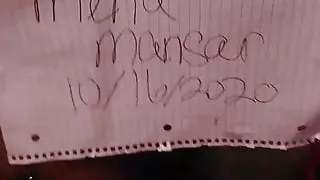 mansar
10/16/2020